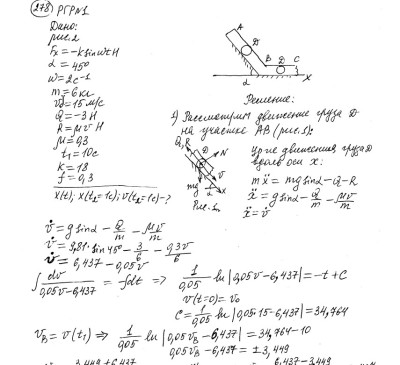 278 РГР№1
Дано:
рис.2
Fx = -k sin ωt H
α = 45°
ω = 2с⁻¹
m = 6 кг
v0 = 15 м/с
Q = -3 H
R = μv H
μ = 0,3
t1 = 10c
k = 18
f = 0,3
x(t); x(t2=1c); v(t2=1c) - ?
A
D
B D C
α x
Решение:
1) Рассмотрим движение груза D
на участке AB (рис.1):
Q, R D N
v
mg α x
Рис.1
ур-е движения груза D
вдоль оси x:
mẍ = mg sin α - Q - R
ẍ = g sin α - Q/m - μv/m
ẍ = v̇
v̇ = g sin α - Q/m - μv/m
v̇ = 9,81 · sin 45° - 3/6 - 0,3v/6
v̇ = 6,437 - 0,05v
∫ dv/(0,05v - 6,437) = -∫dt ⇒ 1/0,05 ln |0,05v - 6,437| = -t + C
v(t=0) = v0
C = 1/0,05 ln |0,05·15 - 6,437| = 34,764
vB = v(t1) ⇒ 1/0,05 ln |0,05vB - 6,437| = 34,764 - 10
0,05vB - 6,437 = ± 3,449
3,449 + 6,437 6,437 - 3,449